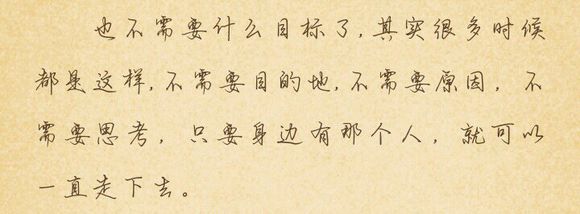 也不需要什么目标了,其实很多时候
都是这样,不需要目的地,不需要原因，不
需要思考，只要身边有那个人，就可以
一直走下去。